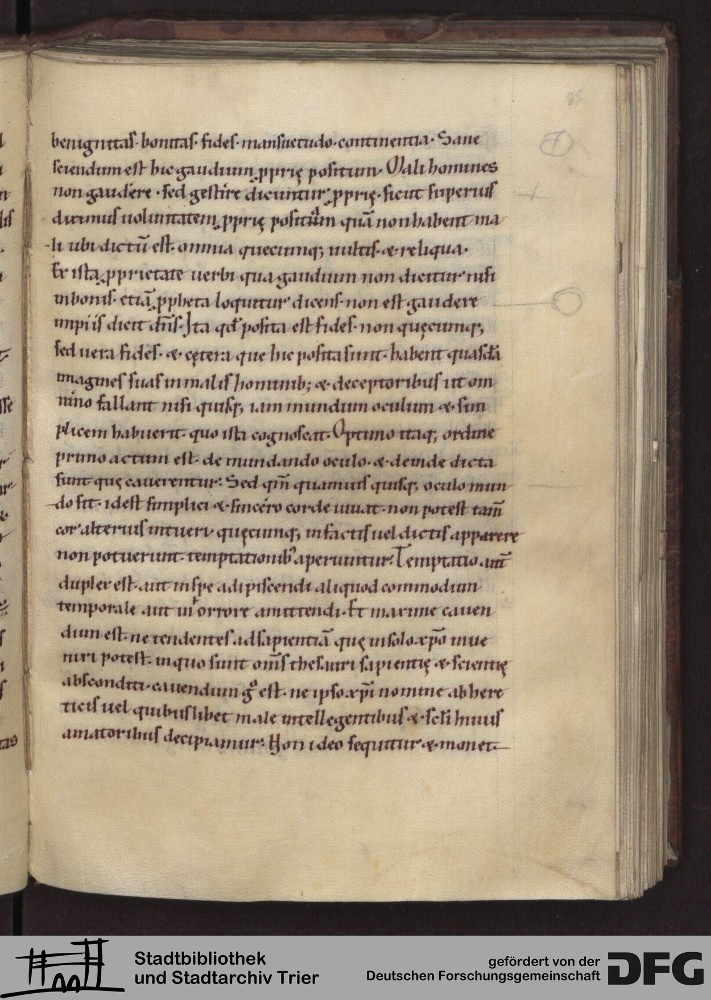 85
benignitas· bonitas· fides· mansuetudo· continentia· Sane
sciendum est hic gaudium ꝓprię positum· Mali homines
non gaudere· sed gestire dicuntur ꝓprię· sicut superius
diximus uoluntatem ꝓprię positam quā non habent ma
li ubi dictū est· omnia quecumq; uultis· & reliqua·
Ex ista ꝓprietate uerbi qua gaudium non dicitur nisi
in bonis· etiā ꝓpheta loquitur dicens· non est gaudere
impiis dicit dn̄s· Ita qđ posita est fides· non quęcumq;
sed uera fides· & cętera que hic posita sunt· habent quasdā
imagines suas in malis hominib; & deceptoribus ut om
nino fallant nisi quisq; iam mundum oculum & sim
plicem habuerit· quo ista cognoscat· Optimo itaq; ordine
primo actum est de mundando oculo· & deinde dicta
sunt quę cauerentur· Sed qm̄ quamuis quisq; oculo mun
do sit· idest simplici & sincero corde uiuat· non potest tam̄
cor alterius intueri quęcumq; in factis uel dictis apparere
non potuerunt· temptationib' aperiuntur· Temptatio aut̄
duplex est· aut in spe adipiscendi aliquod commodum
temporale aut in terrore amittendi· Et maxime cauen
dum est· ne tendentes ad sapientiā quę in solo xp̄o inue
niri potest· in quo sunt om̄s thesauri sapientię & scientię
absconditi· cauendum gͦ est· ne ipso xp̄i nomine ab here
ticis uel quibuslibet male intellegentibus & scl̄i huius
amatoribus decipiamur· Non ideo sequitur & monet
Stadtbibliothek
und Stadtarchiv Trier
gefördert von der
Deutschen Forschungsgemeinschaft
DFG